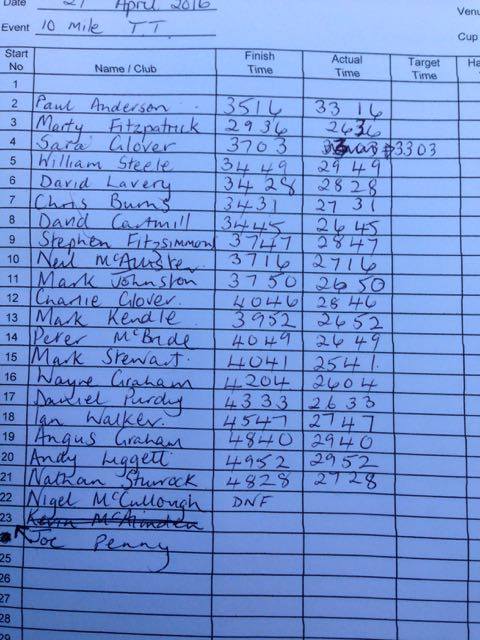 Date 21 April 2016
Venu
Event 10 mile T.T.
Cup
Start No Name / Club Finish Time Actual Time Target Time Ha
1
2 Paul Anderson 3516 3316
3 Marty Fitzpatrick 2936 2636
4 Sara Glover 3703 3303
5 William Steele 3449 2949
6 David Lavery 3428 2828
7 Chris Burns 3431 2731
8 David Cartmill 3445 2645
9 Stephen Fitzsimmons 3747 2847
10 Neil McAlister 3716 2716
11 Mark Johnston 3750 2650
12 Charlie Glover 4046 2846
13 Mark Kendle 3952 2652
14 Peter McBride 4049 2649
15 Mark Stewart 4041 2541
16 Wayne Graham 4204 2604
17 Daniel Purdy 4333 2633
18 Ian Walker 4547 2747
19 Angus Graham 4840 2940
20 Andy Liggett 4952 2952
21 Nathan Sturrock 4828 2728
22 Nigel McCullough DNF
23 Kevin
Joe Penny
25
26
27
28
29